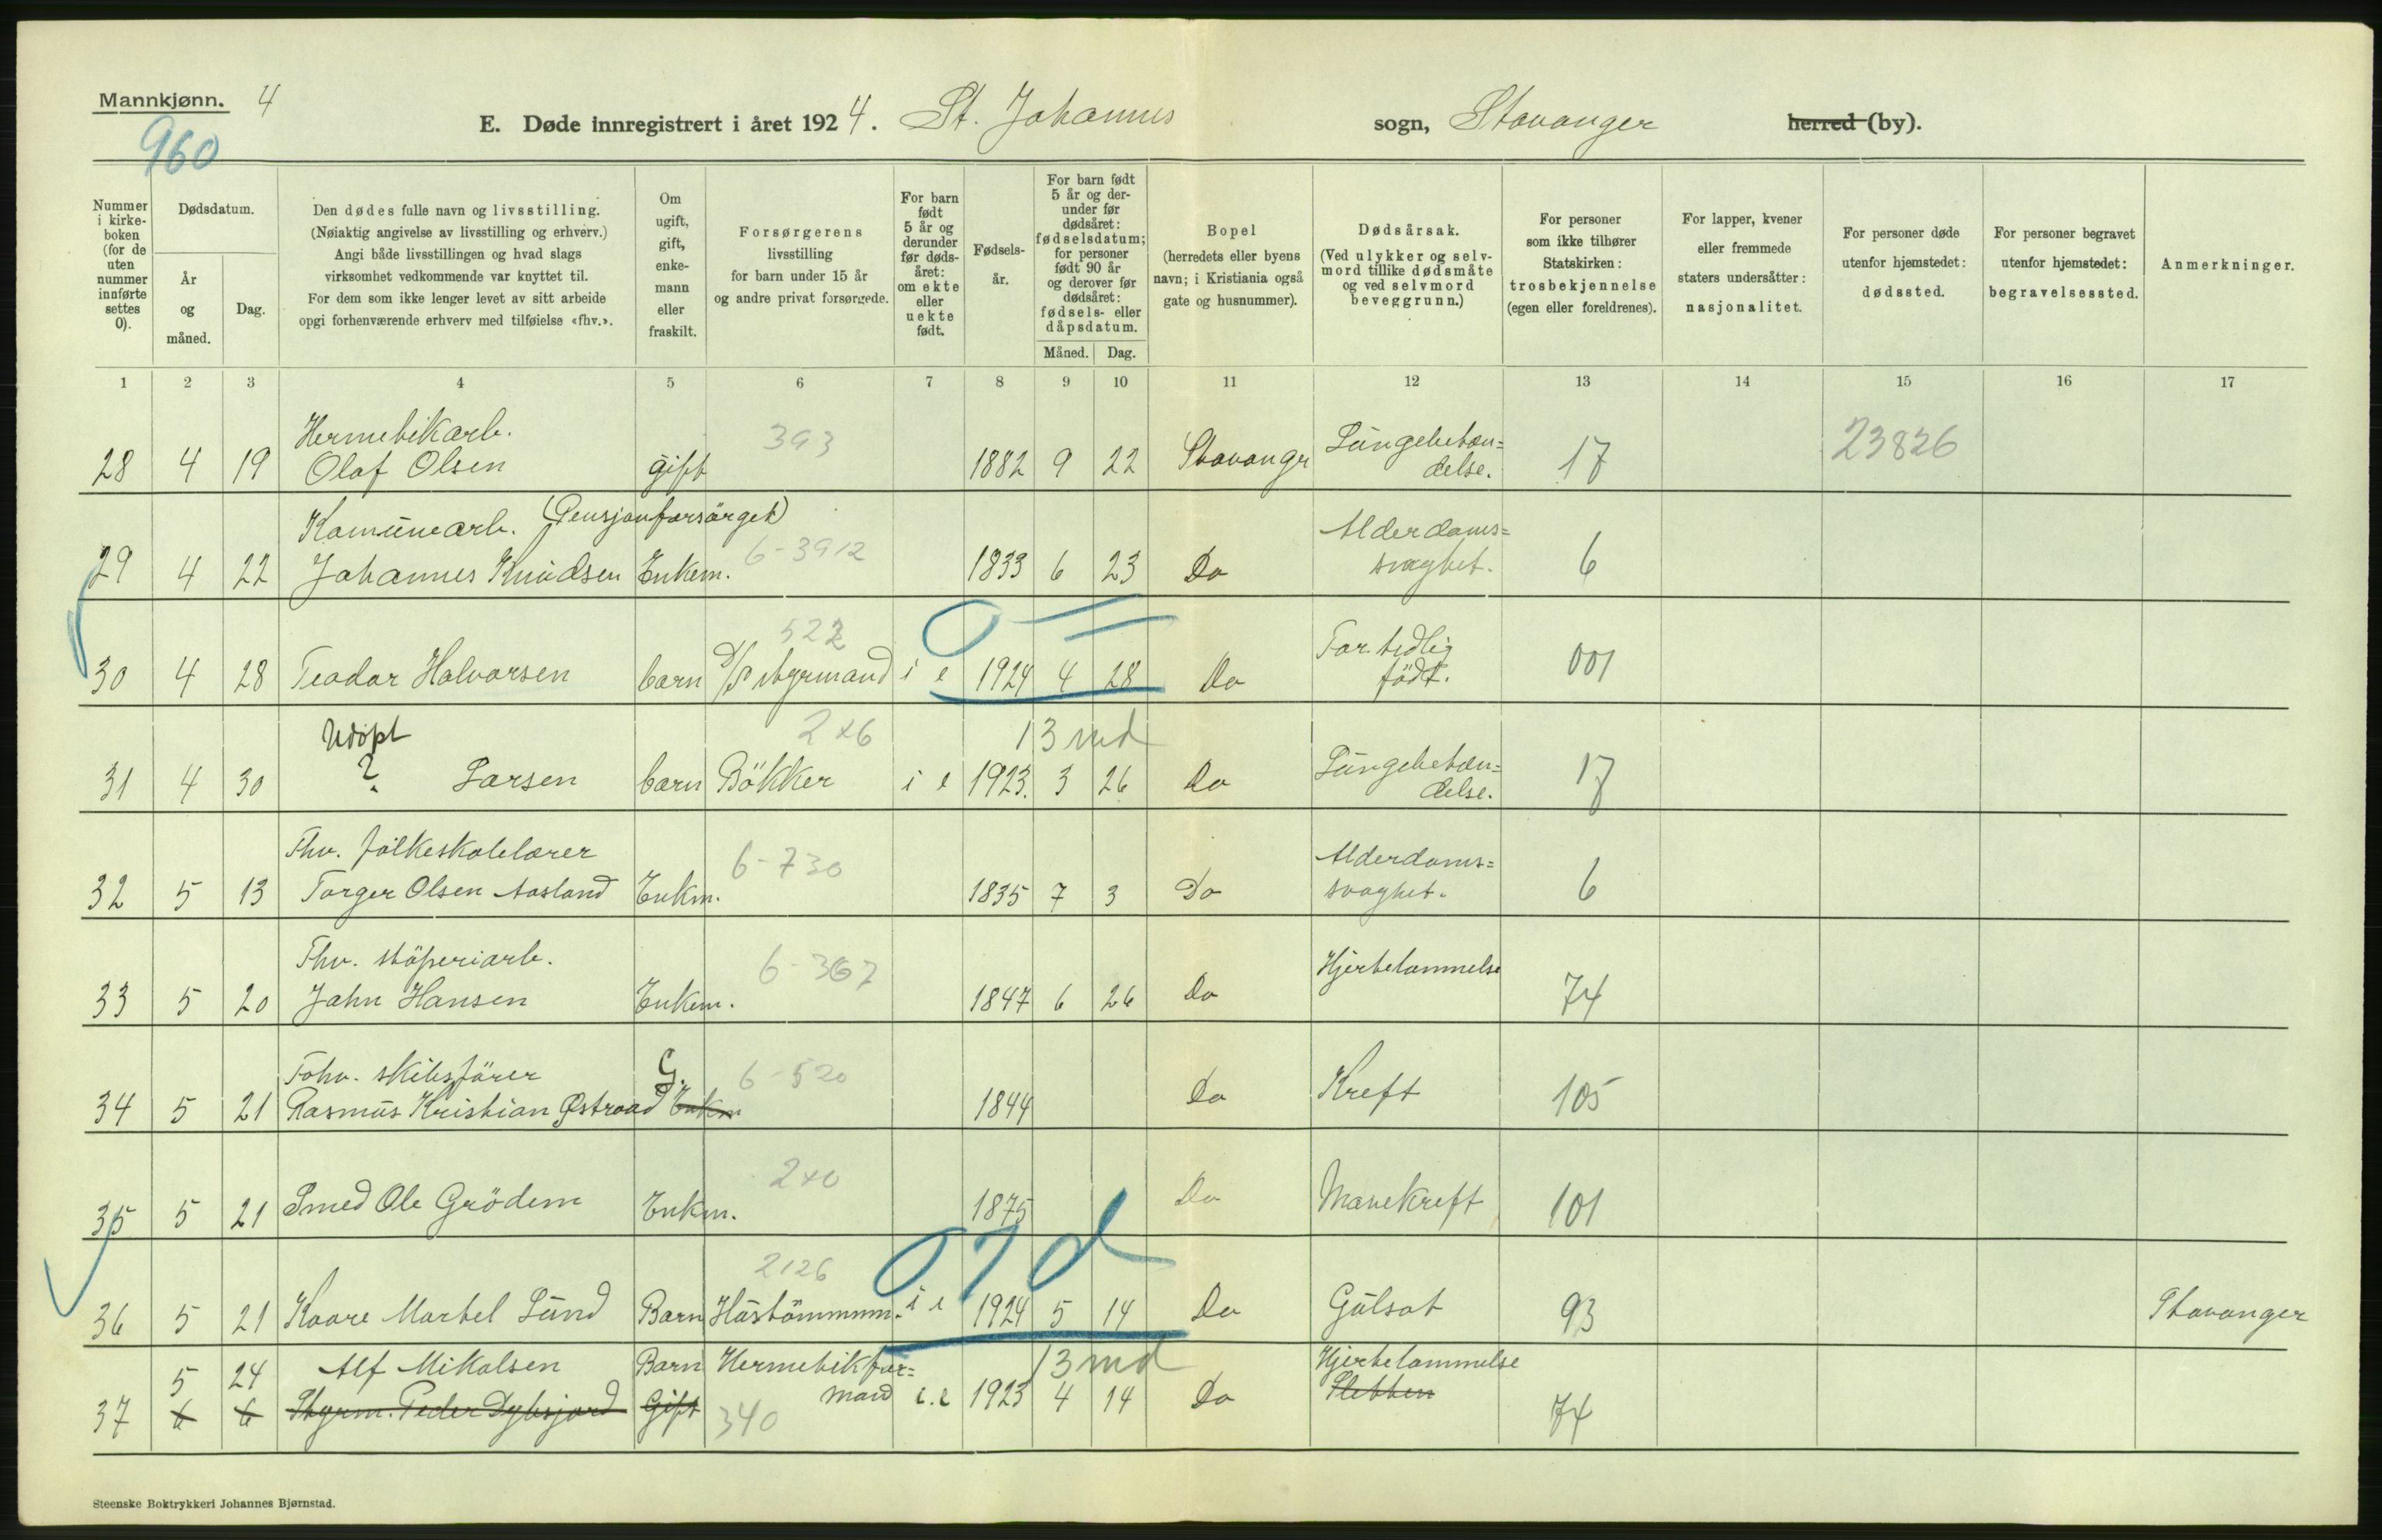 Mannkjønn. 4
960
E. Døde innregistrert i året 1924. St. Johannes sogn, Stavanger herred (by).
Nummer i kirkeboken (for de uten nummer innførte settes 0).
Dødsdatum.
År og måned.
Dag.
Den dødes fulle navn og livsstilling.
(Nøiaktig angivelse av livsstilling og erhverv.)
Angi både livsstillingen og hvad slags
virksomhet vedkommende var knyttet til.
For dem som ikke lenger levet av sitt arbeide
opgi forhenværende erhverv med tilføielse «fhv.».
Om ugift, gift, enkemann eller fraskilt.
Forsørgerens livsstilling
for barn under 15 år
og andre privat forsørgede.
For barn født 5 år og derunder før dødsåret: om ekte eller uekte født.
Fødselsår.
For barn født 5 år og derunder før dødsåret: fødselsdatum; for personer født 90 år og derover før dødsåret: fødsels- eller dåpsdatum.
Måned. Dag.
Bopel
(herredets eller byens
navn; i Kristiania også
gate og husnummer).
Dødsårsak.
(Ved ulykker og selvmord tillike dødsmåte og ved selvmord beveggrunn.)
For personer
som ikke tilhører
Statskirken:
trosbekjennelse
(egen eller foreldrenes).
For lapper, kvener
eller fremmede
staters undersåtter:
nasjonalitet.
For personer døde
utenfor hjemstedet:
dødssted.
For personer begravet
utenfor hjemstedet:
begravelsessted.
Anmerkninger.
1 2 3 4 5 6 7 8 9 10 11 12 13 14 15 16 17
Hermetikarb. 393 Lungebeten= 23826
28 4 19 Olaf Olsen gift 1882 9 22 Stavangr delse. 17
Komunearb. (Pensjonforsörget) Alderdoms=
29 4 22 Johannes Knudsen Enkem. 6-3912 1833 6 23 Do svaghet. 6
522 0 For tidlig
30 4 28 Teodor Halvorsen barn D/S styrmand i e 1924 4 28 Do födt. 001
Udöpt 2x6 13 md Lungebeten=
31 4 30 ? Larsen barn Bökker i e 1923. 3 26 Do delse. 17
Fhv. folkeskolelærer 6-730 Alderdoms=
32 5 13 Torger Olsen Aasland Enkm. 1835 7 3 Do svaghet. 6
Fhv. stöperiarb. 6-367 Hjertelammelse
33 5 20 John Hansen Enkem. 1847 6 26 Do 74
Fohv. skibsförer G. 6-520
34 5 21 Rasmus Kristian Østraad Enkm 1844 Do Kreft 105
2x0
35 5 21 Smed Ole Grödem Enkm. 1875 Do Mavekreft 101
2126 07d
36 5 21 Kaare Martel Lund Barn Hustömmerm. i e 1924 5 14 Do Gulsot 93 Stavanger
5 24 Alf Mikalsen Barn Hermetikfor= 13 md Hjertelammelse
mand i.e 1923 4 14 Do
37 6 6 Styrm. Peder Dybsjord Gift 340 74
Steenske Boktrykkeri Johannes Bjørnstad.